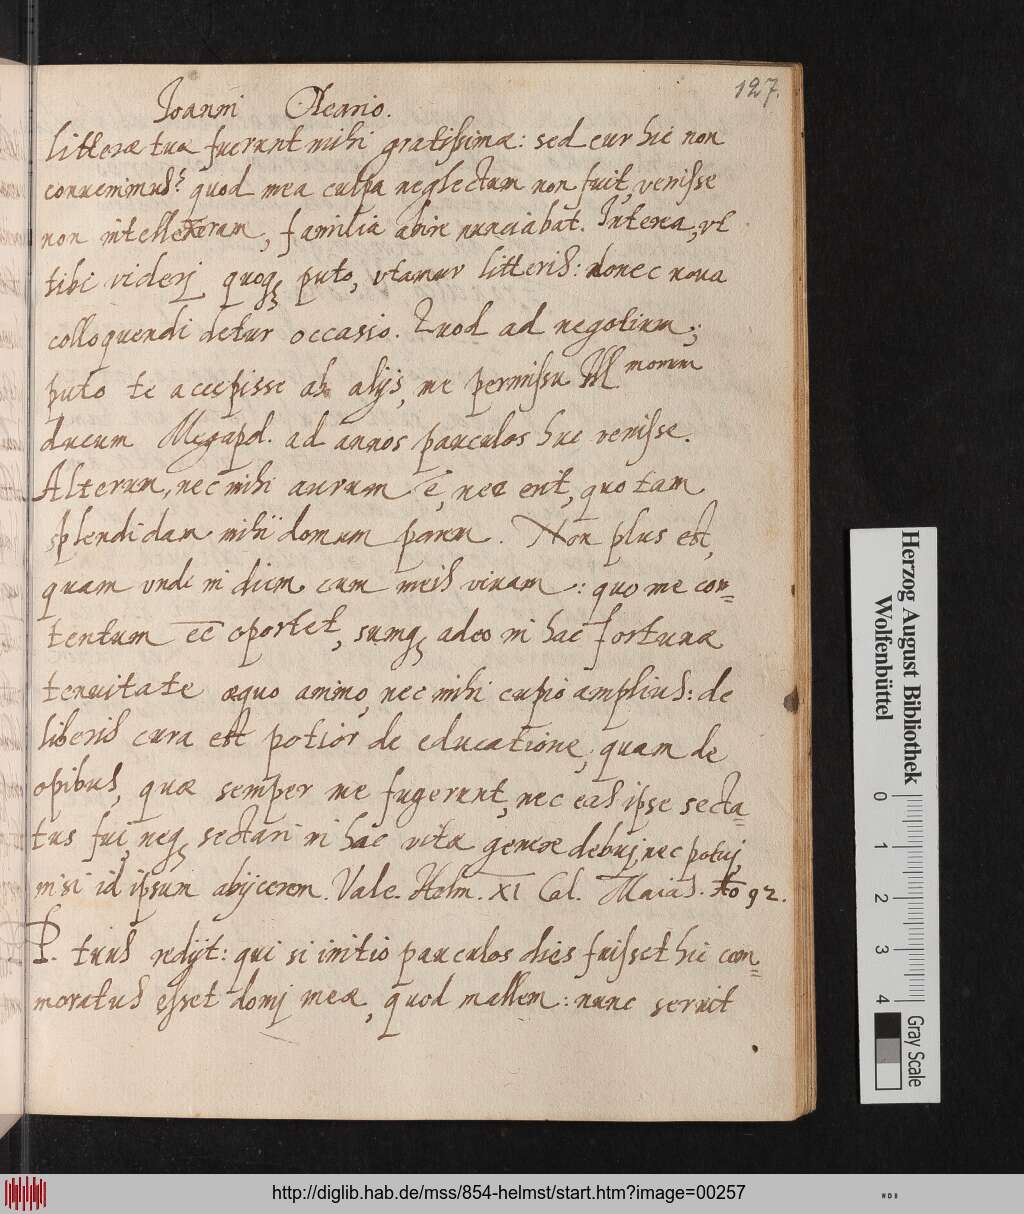 127.
Joanni Oleario.
Litteræ tuæ fuerunt mihi gratissimæ: sed cur hic non
conuenimus? quod mea culpa neglectum non fuit, venisse
non intellexeram, familia abin nunciabat. Interea, vt
tibi viderj quoq₃ puto, vtamur litteris: donec noua
colloquendi detur occasio. Quod ad negotium;
puto te accepisse ab alijs, me permissu Ill morum
ducum Megapol. ad annos pauculos huc venisse.
Alterum, nec mihi aurum ē, nec erit, quo tam
splendidam mihi domum parem. Non plus est,
quam vnde in diem cum meis viuam: quo me con=
tentum eē oportet, sumq₃ adeo in hac fortunæ
tenuitate æquo animo, nec mihi cupio amplius: de
liberis cura est potior de educatione, quam de
opibus, quæ semper me fugerunt, nec eas ipse secta=
tus fui, neq₃ sectari in hac vitæ genere debuj, nec potuj,
nisi id ipsum abijcerem. Vale. Helm. XI Cal. Maias. Ao 92.
P. tuus redijt: qui si initio pauculos dies fuisset hic com=
moratus esset domj meæ, quod mallem: nunc seruit
Herzog August Bibliothek
Wolfenbüttel
0 1 2 3 4
Gray Scale
http://diglib.hab.de/mss/854-helmst/start.htm?image=00257